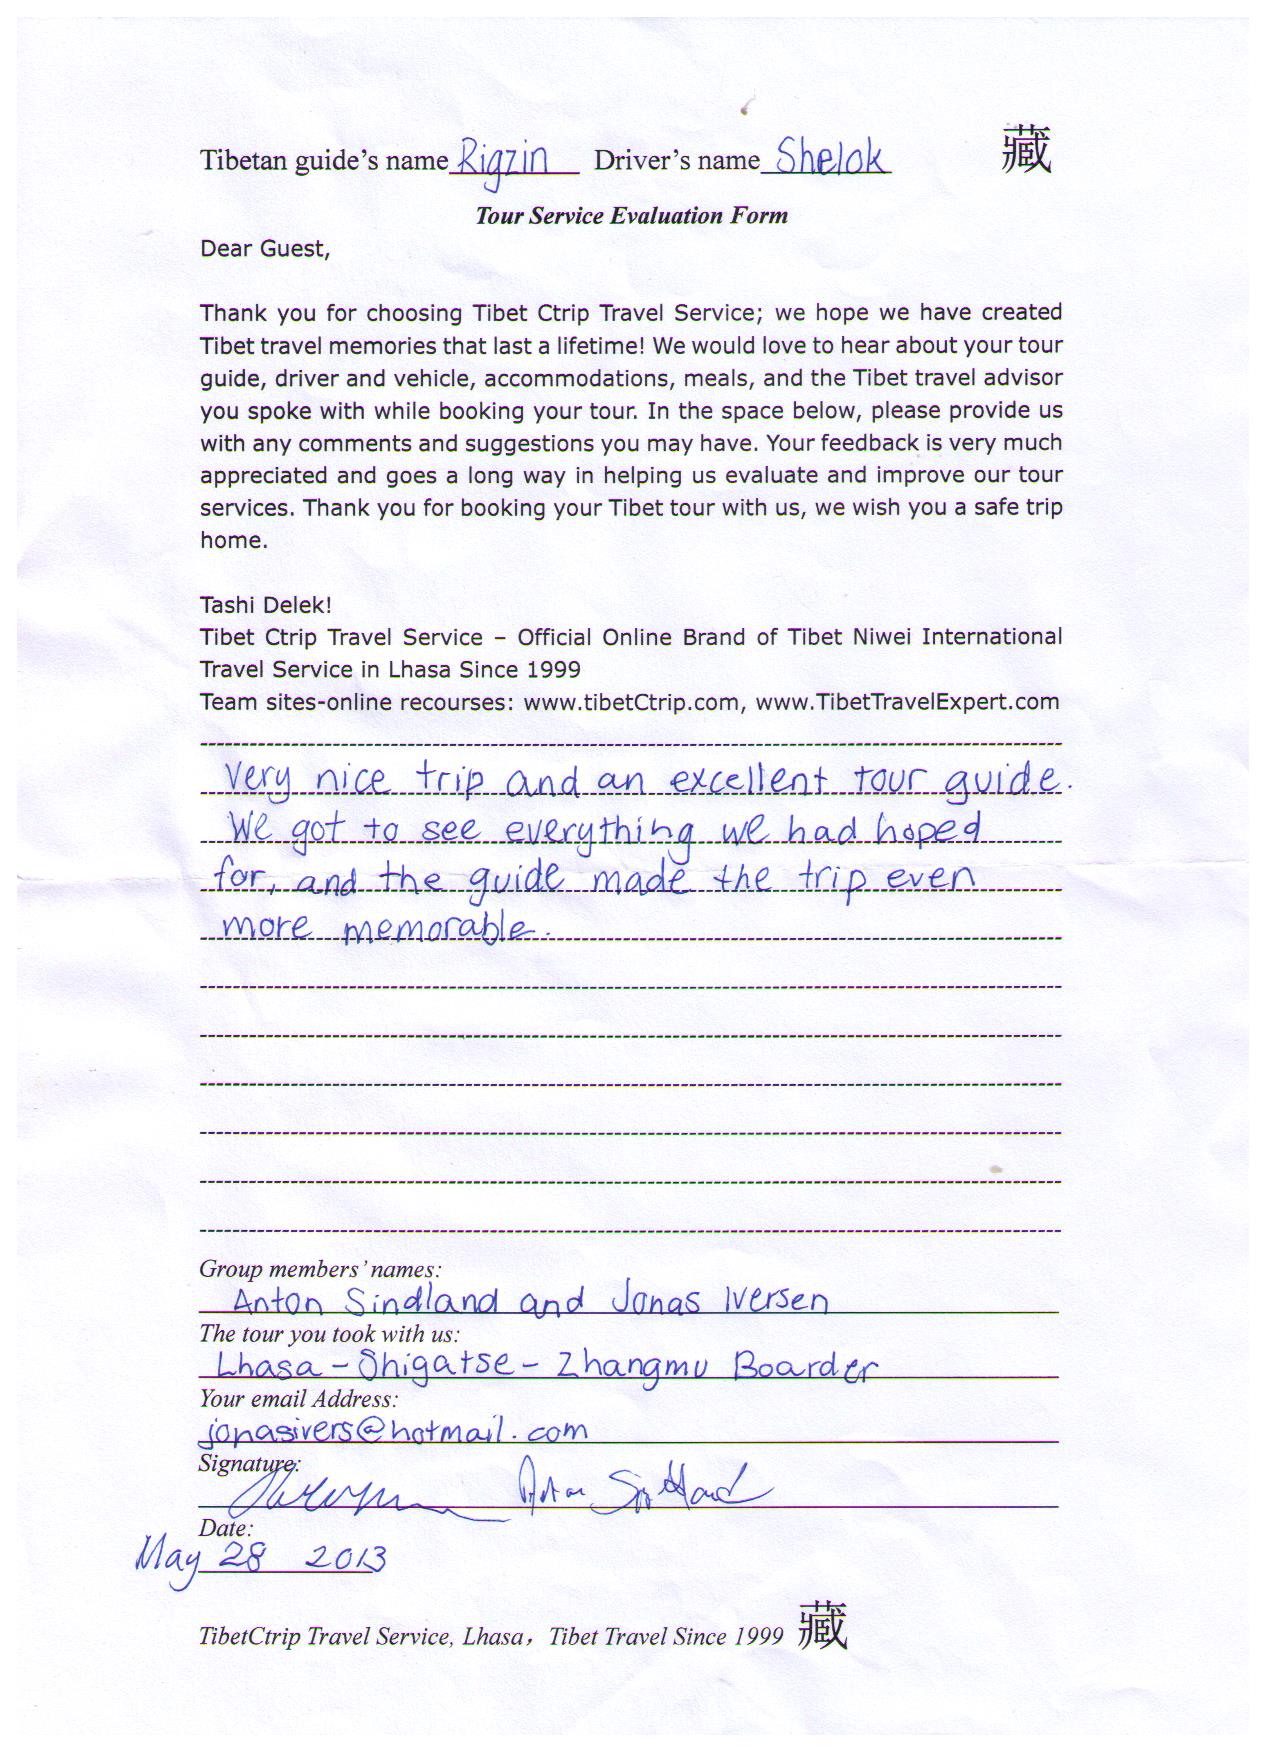 Tibetan guide's name Rigzin Driver's name Shelok 藏
Tour Service Evaluation Form
Dear Guest,
Thank you for choosing Tibet Ctrip Travel Service; we hope we have created
Tibet travel memories that last a lifetime! We would love to hear about your tour
guide, driver and vehicle, accommodations, meals, and the Tibet travel advisor
you spoke with while booking your tour. In the space below, please provide us
with any comments and suggestions you may have. Your feedback is very much
appreciated and goes a long way in helping us evaluate and improve our tour
services. Thank you for booking your Tibet tour with us, we wish you a safe trip
home.
Tashi Delek!
Tibet Ctrip Travel Service – Official Online Brand of Tibet Niwei International
Travel Service in Lhasa Since 1999
Team sites-online recourses: www.tibetCtrip.com, www.TibetTravelExpert.com
Very nice trip and an excellent tour guide.
We got to see everything we had hoped
for, and the guide made the trip even
more memorable.
Group members' names:
Anton Sindland and Jonas Iversen
The tour you took with us:
Lhasa - Shigatse - Zhangmu Boarder
Your email Address:
jonasivers@hotmail.com
Signature:
Date:
May 28 2013
TibetCtrip Travel Service, Lhasa，Tibet Travel Since 1999 藏